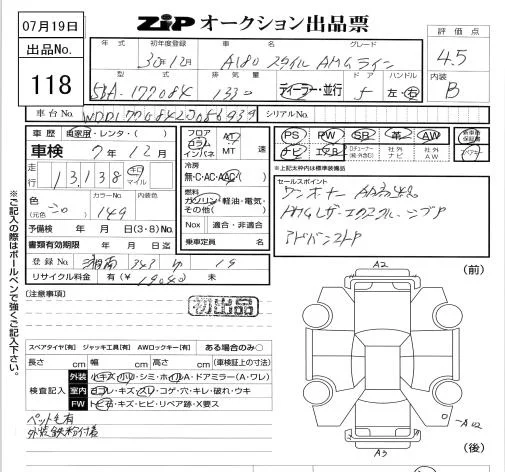 07月19日
ZiP オークション出品票
出品No.
118
年式 初年度登録 車名 グレード
30年12月 A180 スタイル AMGライン
評価点
4.5
型式 排気量 ドア ハンドル
5BA-177084 1330 ディーラー・並行 5 左・右
内装
B
車台No.
シリアルNo.
車歴 自家用・レンタ・( )
車検 7年12月
走行 13,138 キロ マイル
色 カラーNo. 内装色
(元色 ) 149
予備検 年 月 日(3・8)No.
書類有効期限 年 月 日迄
登録No. 湘南 343 19
リサイクル料金 有(¥ ) 未
フロア AT
コラム
インパネ MT 速
冷房
無・C・AC・AAC( )
燃料
ガソリン・軽油・電気・
その他( )
Nox 適合・非適合
乗車定員 名
PS PW SR 革 AW
ナビ エアB Dチューナー(社・外含C) 社外ナビ 社外AW
新車時保証書
※上記太枠内は標準装備品
セールスポイント
ワンオーナー
AMGレザーエクスクルーシブP
アドバンストP
※ご記入の際はボールペンで強くご記入下さい。
(注意事項)
初出品
A2
(前)
スペアタイヤ[有] ジャッキ工具[有] AWロックキー[有] ある場合のみ○
長さ cm 幅 cm 高さ cm (車検証上の寸法)
検査記入
外装 小キズ・小凹・シミ・ホイルA・ドアミラー(A・ワレ)
室内 ヨゴレ・キズ・スレ・コゲ・穴・キレ・破れ・ウキ
FW トビ石・キズ・ヒビ・リペア跡・X要ス
ペット毛有
外装鉄粉付着
A3
(後)